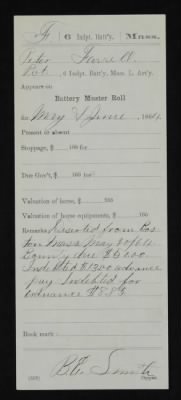 F | 6 Indpt. Batt'y. | Mass.
Peter Farrell
Pvt., 6 Indpt. Batt'y, Mass. L. Art'y.
Appears on
Battery Muster Roll
for May & June, 1864.
Present or absent
Stoppage, $ 100 for
Due Gov't, $ 100 for
Valuation of horse, $ 100
Valuation of horse equipments, $ 100
Remarks: Deserted from Bos-
ton Mass May 20/64.
Indebted $13.00 advance
pay Indebted for
ordnance
Book mark:
Smith
(358) Copyist.